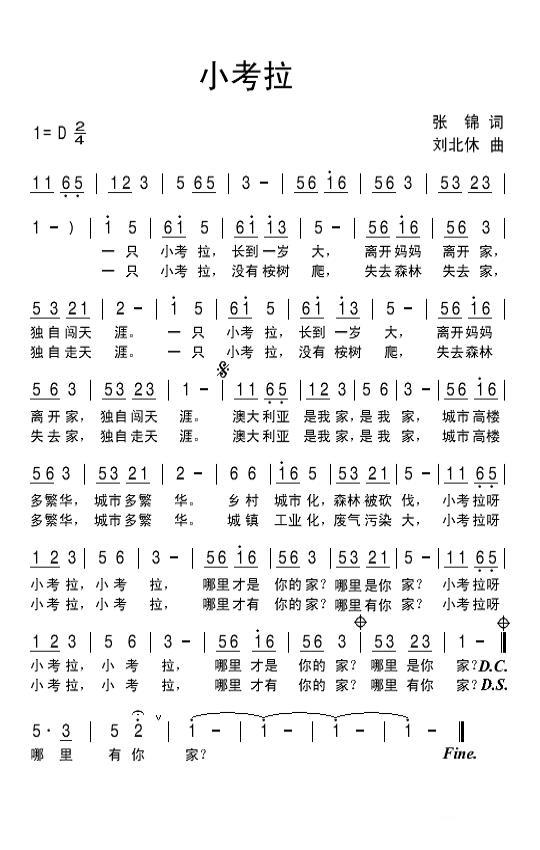 小考拉
1= D 2/4
张 锦 词
刘北休 曲
1 1 6 5 | 1 2 3 | 5 6 5 | 3 - | 5 6 1 6 | 5 6 3 | 5 3 2 3 |
1 - ) | 1 5 | 6 1 5 | 6 1 1 3 | 5 - | 5 6 1 6 | 5 6 3 |
一 只 小考 拉， 长到一岁 大， 离开妈妈 离开 家，
一 只 小考 拉， 没有桉树 爬， 失去森林 失去 家，
5 3 2 1 | 2 - | 1 5 | 6 1 5 | 6 1 1 3 | 5 - | 5 6 1 6 |
独自闯天 涯。 一 只 小考 拉， 长到 一岁 大， 离开妈妈
独自走天 涯。 一 只 小考 拉， 没有 桉树 爬， 失去森林
5 6 3 | 5 3 2 3 | 1 - | 1 1 6 5 | 1 2 3 | 5 6 3 | 5 6 1 6 |
离开 家， 独自闯天 涯。 澳大利亚 是我 家，是 我 家， 城市高楼
失去 家， 独自走天 涯。 澳大利亚 是我 家，是 我 家， 城市高楼
5 6 3 | 5 3 2 1 | 2 - | 6 6 | 1 6 5 | 5 3 2 1 | 2 - | 1 1 6 5 |
多繁华， 城市多繁 华。 乡 村 城市 化，森林被砍 伐， 小考 拉呀
多繁华， 城市多繁 华。 城 镇 工业 化，废气污染 大， 小考 拉呀
1 2 3 | 5 6 | 3 - | 5 6 1 6 | 5 6 3 | 5 3 2 1 | 2 - | 1 1 6 5 |
小考 拉，小 考 拉， 哪里才是 你的 家？哪里是你 家？ 小考 拉呀
小考 拉，小 考 拉， 哪里才有 你的 家？哪里有你 家？ 小考 拉呀
1 2 3 | 5 6 | 3 - | 5 6 1 6 | 5 6 3 | 5 3 2 3 | 1 -
小考 拉， 小 考 拉， 哪里 才是 你的 家？ 哪里 是你 家？D.C.
小考 拉， 小 考 拉， 哪里 才有 你的 家？ 哪里 有你 家？D.S.
5 · 3 | 5 2 | 1 - | 1 - | 1 - | 1 -
哪 里 有 你 家？ Fine.